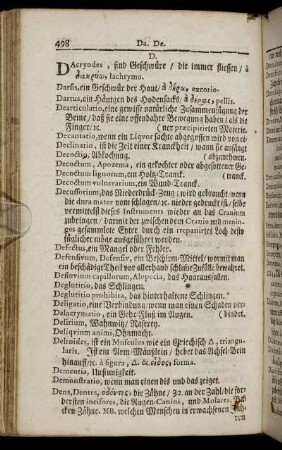 498 Da. De.
D.
DAcryodes, sind Geschwüre / die immer fliessen / à
δακρύω, lachrymo.
Darsis, ein Geschwür der Haut / à δέρω, excorio.
Dartus, ein Häutgen des Hodensacks / à δέρας, pellis.
Dearticulatio, eine gewisse natürliche Zusammenfügung der
Beine / daß sie eine offenbahre Bewegung haben / als die
Finger / ꝛc. (ner præcipitirten Materie.
Decantatio, wenn ein Liqvor sachte abgegossen wird von ei-
Declinatio, ist die Zeit einer Kranckheit / wann sie anfängt
Decoctio, Abkochung. (abzunehmen.
Decoctum, Apozema, ein gekochter oder abgesottener Ge-
Decoctum lignorum, ein Holtz-Tranck. (tranck.
Decoctum vulnerarium, ein Wund-Tranck.
Decussorium, das Niederdrück-Zeug; wird gebraucht wenn
die dura mater vom schlagen / ꝛc. nieder gedruckt ist / selbe
vermittelst dieses Instruments wieder an das Cranium
zubringen / damit der zwischen dem Cranio und menin-
gos gesammlete Eyter durch ein trepanirtes Loch desto
füglicher möge ausgeführet werden.
Defectus, ein Mangel oder Fehler.
Defensivum, Defensiv, ein Beschirm-Mittel / womit man
ein beschädigt Theil vor allerhand schlimme Zufälle bewahret.
Defluvium capillorum, Alopecia, das Haarausfallen.
Deglutitio, das Schlingen.
Deglutitio prohibita, das hinterhaltene Schlingen.
Deligatio, eine Verbindung; wenn man einen Schaden ver-
Delacrymatio, ein Gehr-Fluß im Augen. (bindet.
Delirium, Wahnwitz / Raserey.
Deliqvium animi, Ohnmacht.
Deltoides, ist ein Musculus wie ein Griechisch Δ, triangula-
ris. Ist ein Arm-Mäußlein / hebet das Achsel-Bein
hinauff / ꝛc. à figura, Δ. & εἶδος, forma.
Dementia, Unsinnigkeit.
Demonstratio, wenn man einen dis und das zeiget.
Dens, Dentes, ὀδόντες, die Zähne / 32. an der Zahl / die for-
dersten incisores, die Augen-Canini, und Molares, Ba-
cken-Zähne. NB. welchen Menschen in erwachsenen Jah-
ren